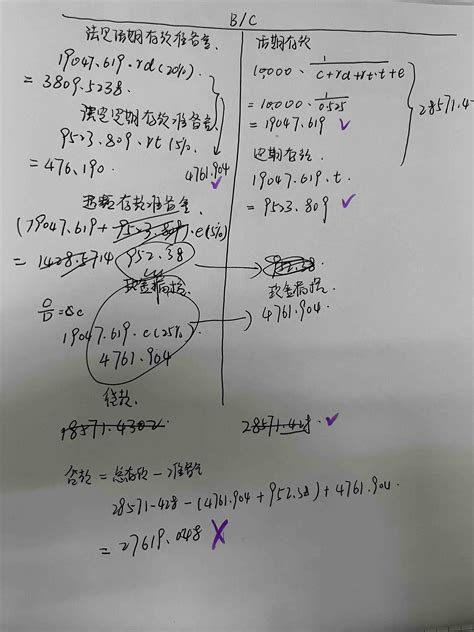 B/C
法定活期存款准备金
19047.619 · rd(20%)
= 3809.5238.
法定定期存款准备金
9523.809 · rt (5%)
= 476.190
4761.904
超额存款准备金
(19047.619 + 9523.809) · e(5%)
= 1428.5714 952.38
现金漏损
19047.619 · c(25%)
4761.904
贷款
18571.4302
活期存款
10,000 · 1/(c+rd+rt·t+e)
= 10,000 · 1/0.525
= 19047.619
定期存款
19047.619 · t
= 9523.809
28571.4
952.38
现金漏损
4761.904
28571.428
贷款 = 总存款 - 准备金
28571.428 - (4761.904 + 952.38) + 4761.904
= 27619.048